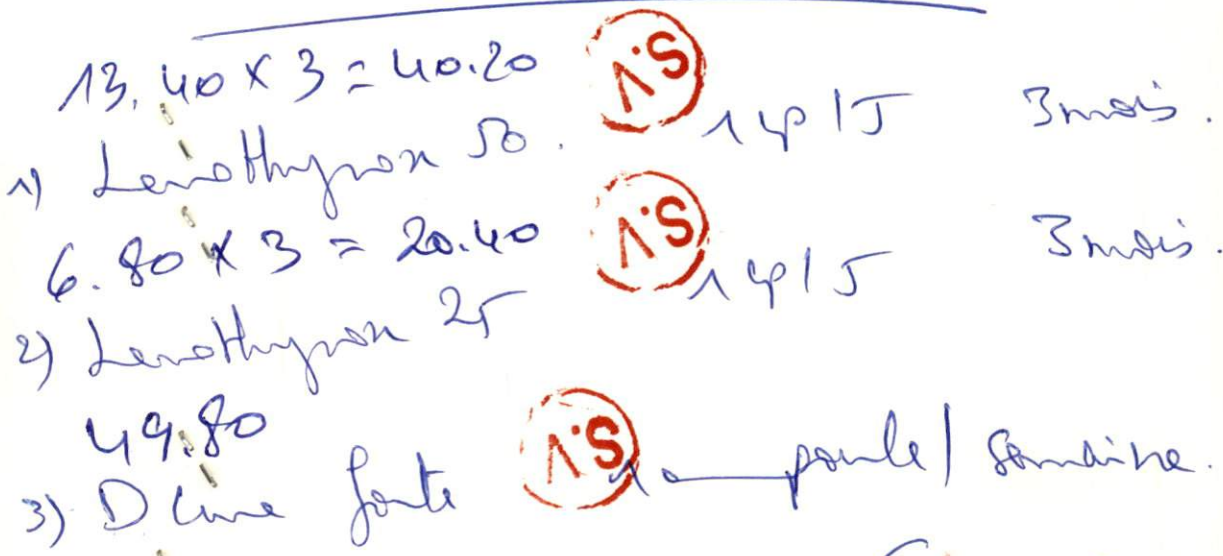 13.40 x 3 = 40.20 S.V
1) Levothyrox 50. 1 cp / J 3 mois.
6.80 x 3 = 20.40 S.V
2) Levothyrox 25 1 cp / J 3 mois.
49.80
3) D Cure forte S.V 1 ampoule / semaine.